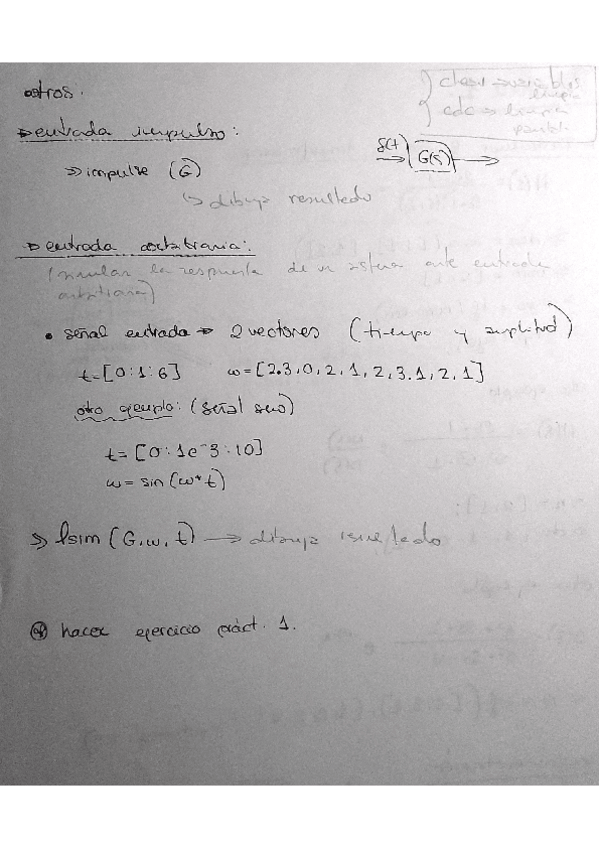 otros.
} clear → variables limpia
} clc → limpia pantalla
→ entrada impulso:
δ(t) → G(s) →
⇒ impulse (G)
↳ dibuja resultado
→ entrada arbitraria:
(simular la respuesta de un sistema ante entrada arbitraria)
• señal entrada → 2 vectores (tiempo y amplitud)
t=[0:1:6] w=[2.3,0,2,1,2,3.1,2,1]
otro ejemplo: (señal seno)
t=[0:1e^-3:10]
w=sin(w*t)
⇒ lsim(G,w,t) → dibuja resultado
hacer ejercicio práct. 1.